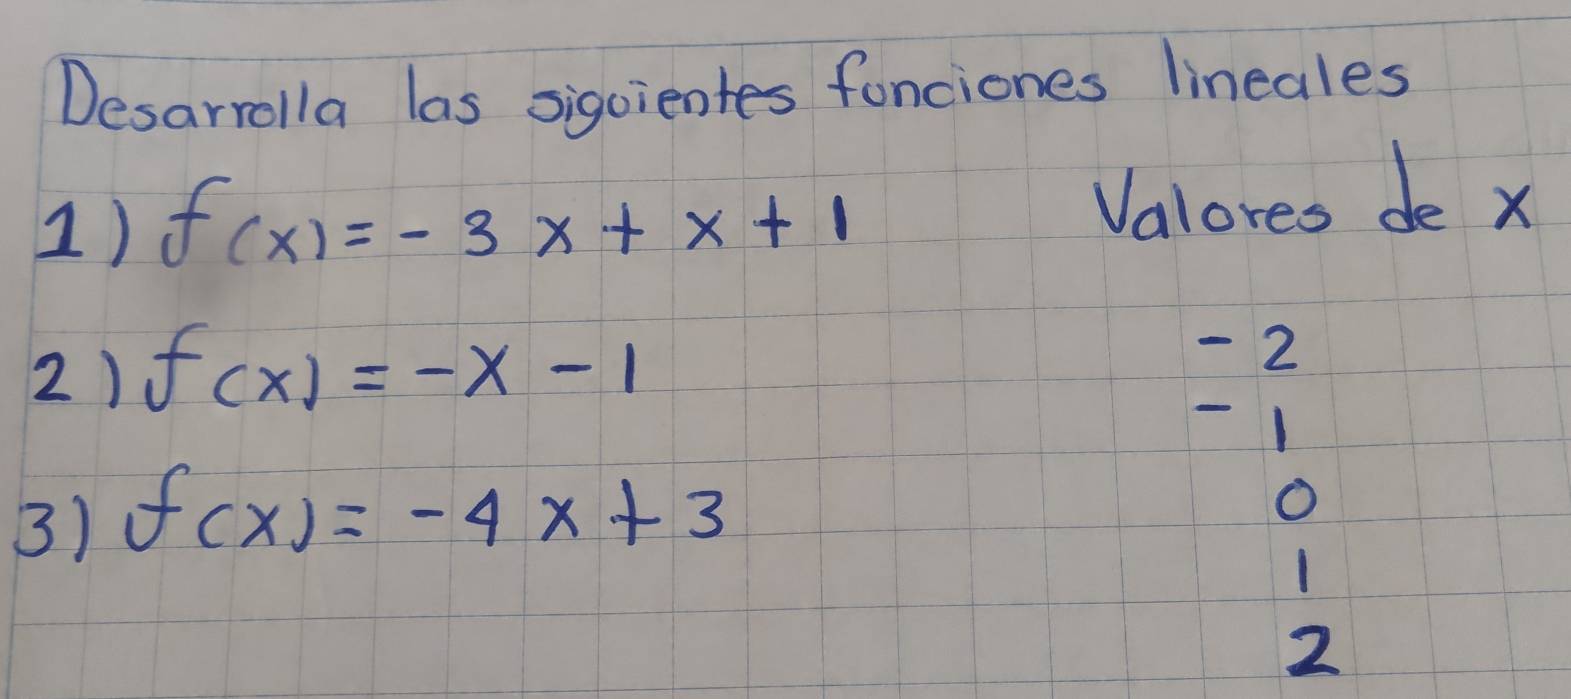 Desarrolla las siguientes funciones lineales
1) f(x) = - 3 x + x + 1 Valores de x
2) f(x) = - x - 1
- 2
- 1
3) f(x) = - 4 x + 3
0
1
2